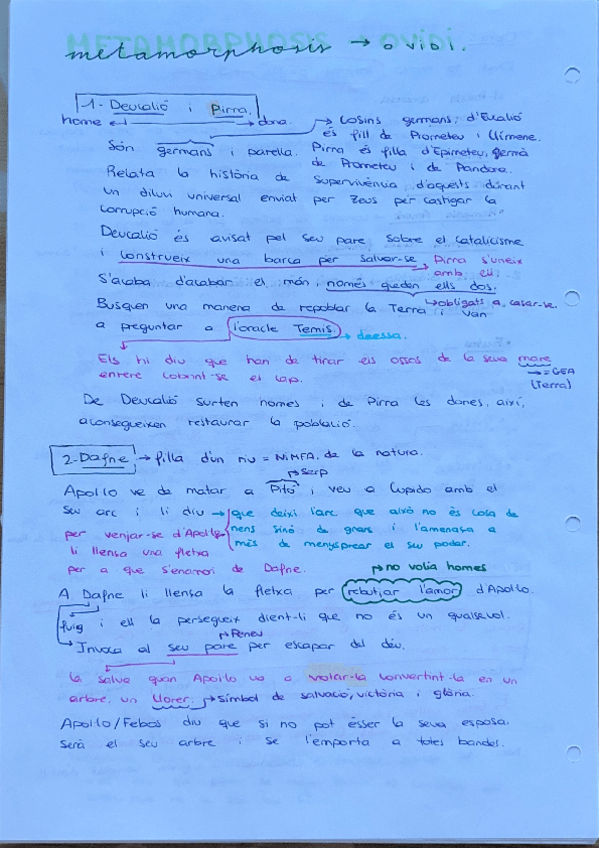 metamorphosis → ovidi.
1- Deucalió i Pirra.
home ← → dona.
→ cosins germans; d'Eucalió
és fill de Prometeu i Clímene.
Són germans i parella. Pirra és filla d'Epimeteu, germà
de Prometeu i de Pandora.
Relata la història de supervivència d'aquests durant
un diluvi universal enviat per Zeus per castigar la
corrupció humana.
Deucalió és avisat pel seu pare sobre el catalicisme
i construeix una barca per salvar-se → Pirra s'uneix
amb ell.
S'acaba d'acabar el món i només queden ells dos.
↳ obligats a casar-se.
Busquen una manera de repoblar la Terra i van
a preguntar a l'oracle Temis. → deessa.
Els hi diu que han de tirar els ossos de la seva mare
→ = GEA
(Terra)
enrere cobrint-se el cap.
De Deucalió surten homes i de Pirra les dones, així,
aconsegueixen restaurar la població.
2-Dafne → filla d'un riu = NIMFA. de la natura.
→ serp
Apol·lo ve de matar a Pitó i veu a Cupido amb el
seu arc i li diu → que deixi l'arc que això no és cosa de
nens sinó de grans i l'amenaça a
més de menysprear el seu poder.
per venjar-se d'Apol·lo
li llensa una fletxa
per a que s'enamori de Dafne.
→ no volia homes
A Dafne li llensa la fletxa per rebutjar l'amor d'Apol·lo.
fuig i ell la persegueix dient-li que no és un qualsevol.
→ Peneu
↳ Invoca al seu pare per escapar del déu.
La salva quan Apol·lo va a violar-la convertint-la en un
arbre, un llorer. → símbol de salvació, victòria i glòria.
Apol·lo/Febos diu que si no pot ésser la seva esposa.
serà el seu arbre i se l'emporta a totes bandes.